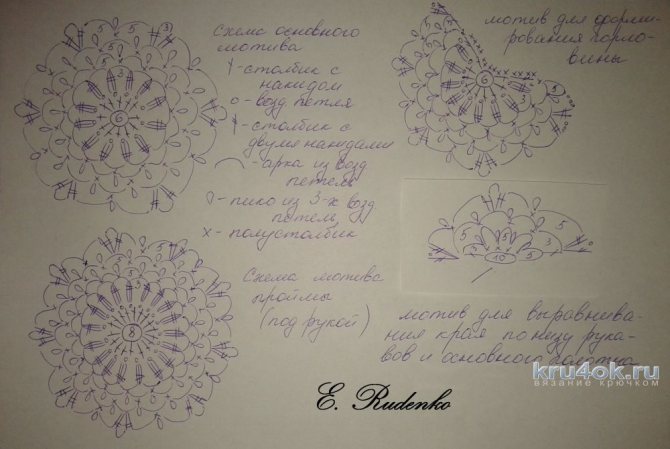 схема основного
мотива
- столбик с
накидом
о - возд петля
- столбик с
двумя накидами
- арка из возд
петель
- пико из 3-х возд
петель,
х - полустолбик
мотив для форми-
рования горло-
вины
Схема мотива
проймы
(под рукой)
мотив для выравнива-
ния края по низу рука-
вов и основного полотна
E. Rudenko
kru4ok.ru
вязание крючком